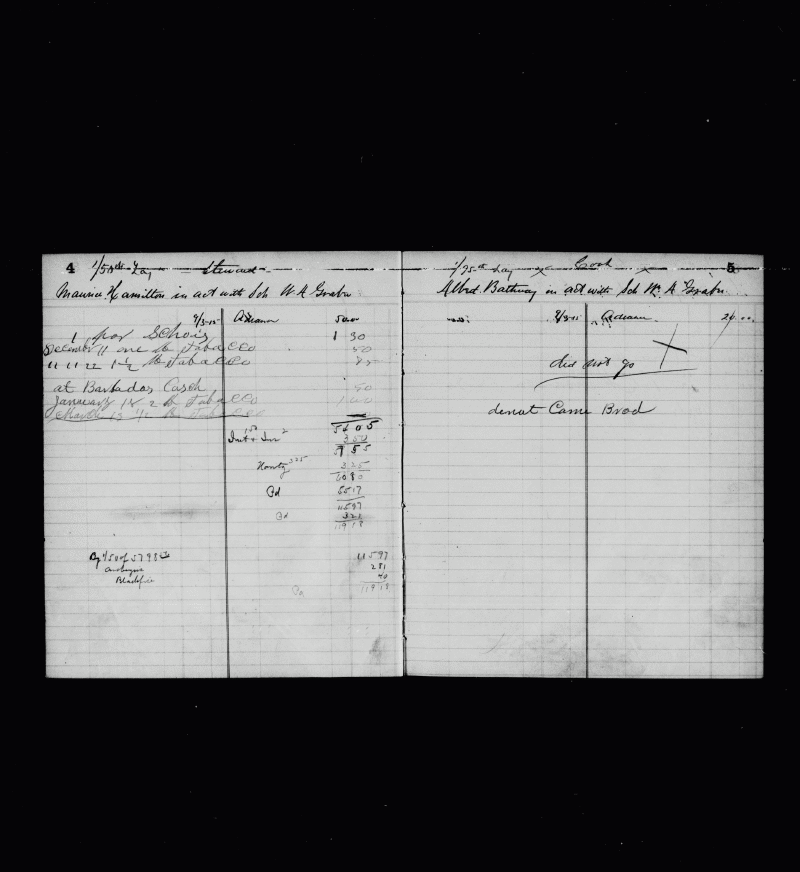 4 1/50th Lay Steward
Maurice Hamilton in act with Sch W. A. Grabn
9/3-15 Advance 50.00
1 par Schois 1 30
December 11 one lb Tobacco 50
11 11-22 1½ lb Tobacco
at Barbados Cash 50
January 18 2 lb Tobacco 1.00
March 13 ½ lb Tobacco
5405
150
Int + Ins 2 350
5755
325 325
6080
Pd 5517
11597
Pd 321
11918
By 1/50 of 5798
11597
281
40
11918
5 1/75th Lay Cook
Albrd. Bathway in act with Sch W. A Grabn
9/3-15 Advance
did not go X
denat Came Brod